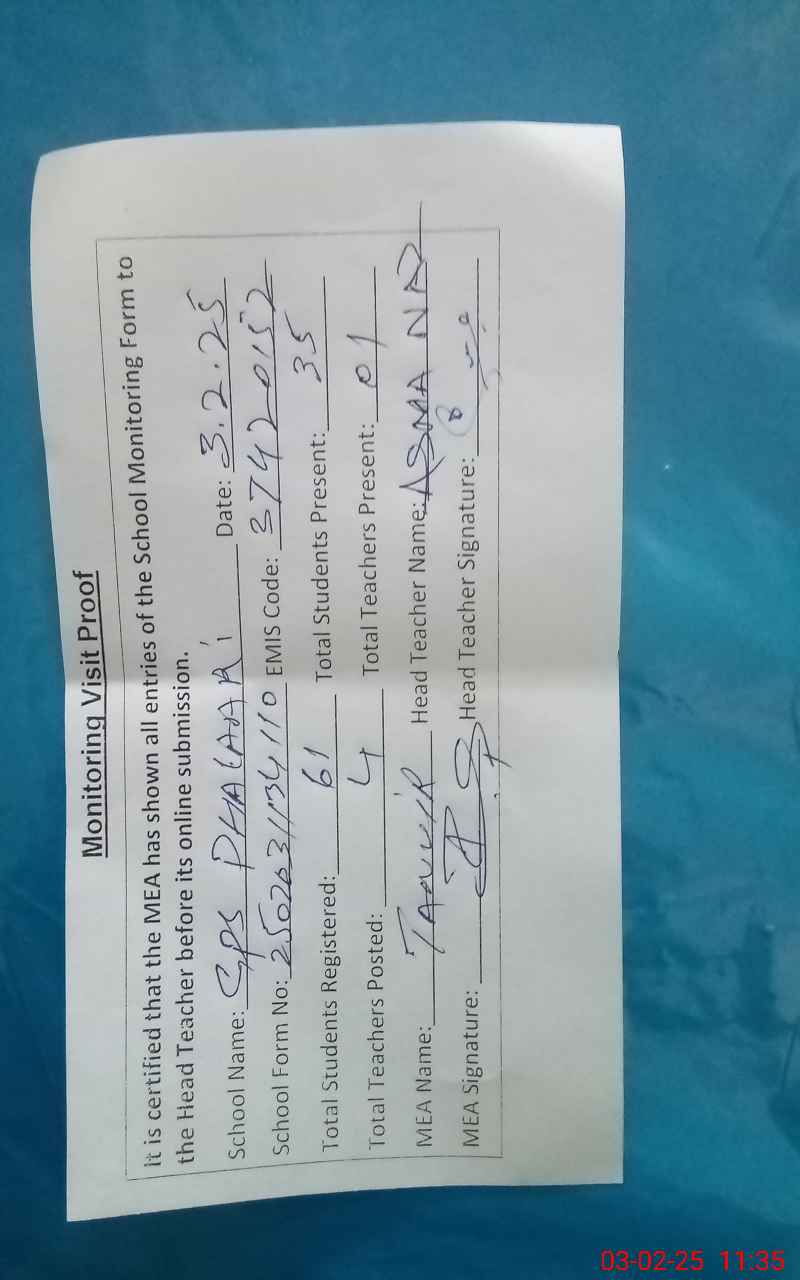 Monitoring Visit Proof
it is certified that the MEA has shown all entries of the School Monitoring Form to
the Head Teacher before its online submission.
School Name: GPS Date: 3.2.25
School Form No: 2502031134110 EMIS Code: 37420152
Total Students Registered: 61 Total Students Present: 35
Total Teachers Posted: 4 Total Teachers Present: 01
MEA Name: TANVIR Head Teacher Name: ASMA
MEA Signature: Head Teacher Signature:
03-02-25 11:35